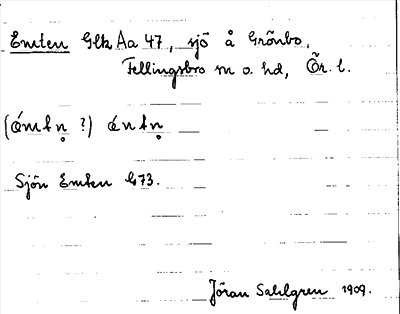 Emten Glk Aa 47, sjö å Grönbo,
Fellingsbro sn o. hd, Ör. l.
(ǿmtn̥ ?) ǿntn̥
Sjön Emten G73.
Jöran Sahlgren 1909.